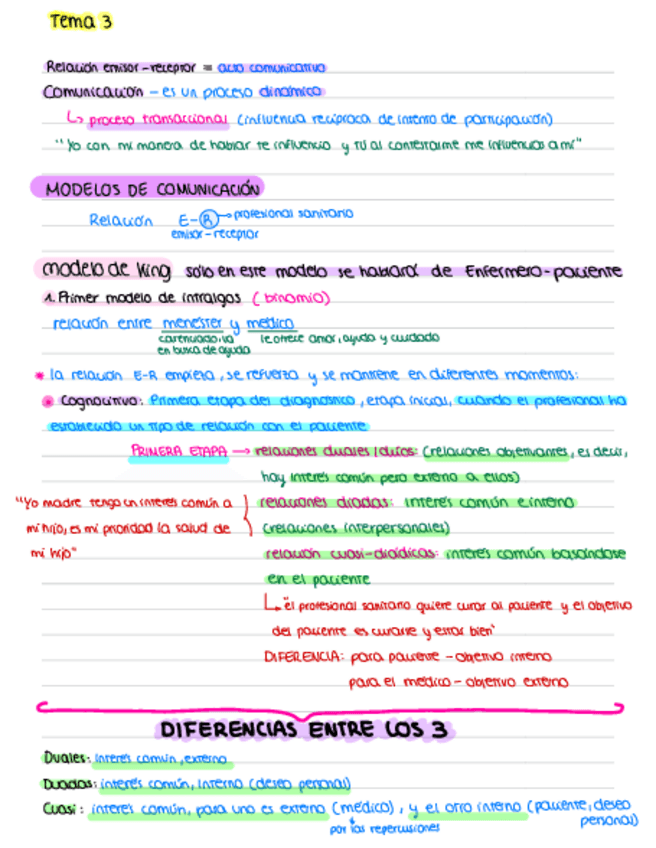 Tema 3
Relación emisor-receptor = acto comunicativo
Comunicación - es un proceso dinámico
↳ proceso transaccional (influencia recíproca de intento de participación)
"Yo con mi manera de hablar te influencio y tú al contestarme me influencias a mí"
MODELOS DE COMUNICACIÓN
Relación E-R → profesional sanitario
emisor-receptor
modelo de King sólo en este modelo se hablará de Enfermero-paciente
1. Primer modelo de intralgos (binomio)
relación entre menester y médico
carenciado, va le ofrece amor, ayuda y cuidado
en busca de ayuda
* la relación E-R empieza, se refuerza y se mantiene en diferentes momentos:
Cognoscitivo: Primera etapa del diagnóstico, etapa inicial, cuando el profesional ha
establecido un tipo de relación con el paciente
PRIMERA ETAPA → relaciones duales/dúos: (relaciones objetivantes, es decir,
hay interés común pero externo a ellos)
"Yo madre tengo un interés común a relaciones diadas: interés común e interno
mi hijo, es mi prioridad la salud de (relaciones interpersonales)
mi hijo" relación cuasi-diádicas: interés común basándose
en el paciente
↳ "el profesional sanitario quiere curar al paciente y el objetivo
del paciente es curarse y estar bien"
DIFERENCIA: para paciente - objetivo interno
para el médico - objetivo externo
DIFERENCIAS ENTRE LOS 3
Duales: interés común, externo
Duadas: interés común, interno (deseo personal)
Cuasi: interés común, para uno es externo (médico), y el otro interno (paciente, deseo
por las repercusiones personal)